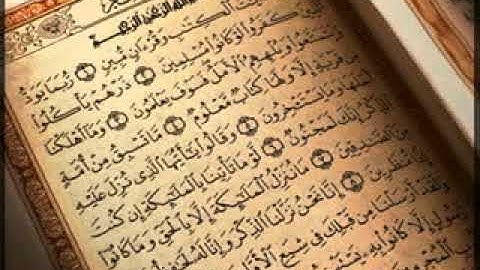 الله الرحمن الرحيم
ءَايَٰتُ ٱلْكِتَٰبِ وَقُرْءَانٍ مُّبِينٍ ١ رُّبَمَا يَوَدُّ
ٱلَّذِينَ كَفَرُوا۟ لَوْ كَانُوا۟ مُسْلِمِينَ ٢ ذَرْهُمْ يَأْكُلُوا۟
وَيَتَمَتَّعُوا۟ وَيُلْهِهِمُ ٱلْأَمَلُ فَسَوْفَ يَعْلَمُونَ ٣ وَمَآ أَهْلَكْنَا
مِن قَرْيَةٍ إِلَّا وَلَهَا كِتَابٌ مَّعْلُومٌ ٤ مَّا تَسْبِقُ مِنْ أُمَّةٍ
أَجَلَهَا وَمَا يَسْتَـْٔخِرُونَ ٥ وَقَالُوا۟ يَٰٓأَيُّهَا ٱلَّذِى نُزِّلَ عَلَيْهِ
ٱلذِّكْرُ إِنَّكَ لَمَجْنُونٌ ٦ لَّوْ مَا تَأْتِينَا بِٱلْمَلَٰٓئِكَةِ إِن كُنتَ
مِنَ ٱلصَّٰدِقِينَ ٧ مَا نُنَزِّلُ ٱلْمَلَٰٓئِكَةَ إِلَّا بِٱلْحَقِّ وَمَا كَانُوٓا۟
إِذًا مُّنظَرِينَ ٨ إِنَّا نَحْنُ نَزَّلْنَا ٱلذِّكْرَ وَإِنَّا لَهُۥ
وَلَقَدْ أَرْسَلْنَا مِن قَبْلِكَ فِى شِيَعِ ٱلْأَوَّلِينَ
رَّسُولٍ إِلَّا كَانُوا۟ بِهِۦ